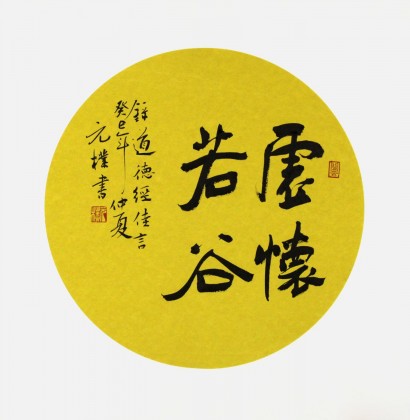 虚懷
若谷
錄道德經佳言
癸巳年仲夏
元樸書